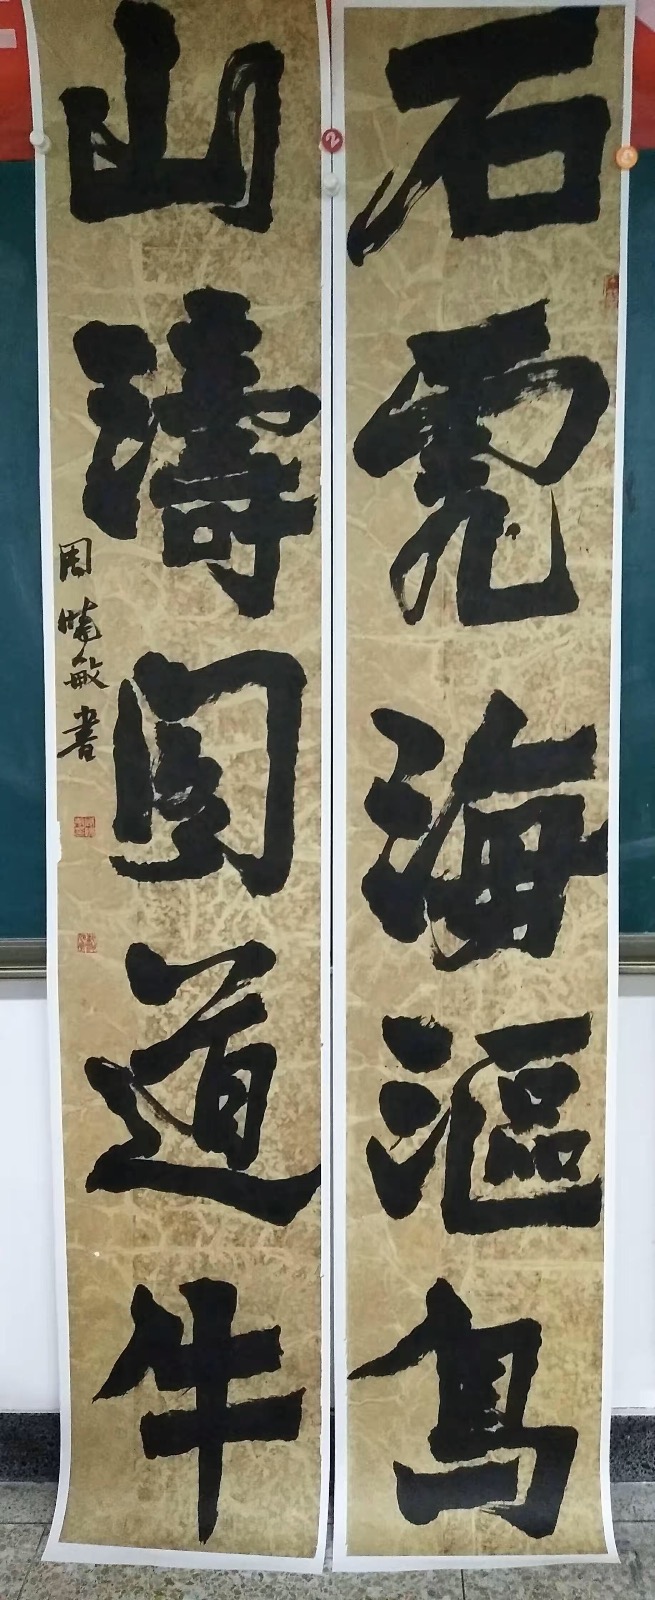 石虎海漚鳥
山濤閣道牛
周曉敏書